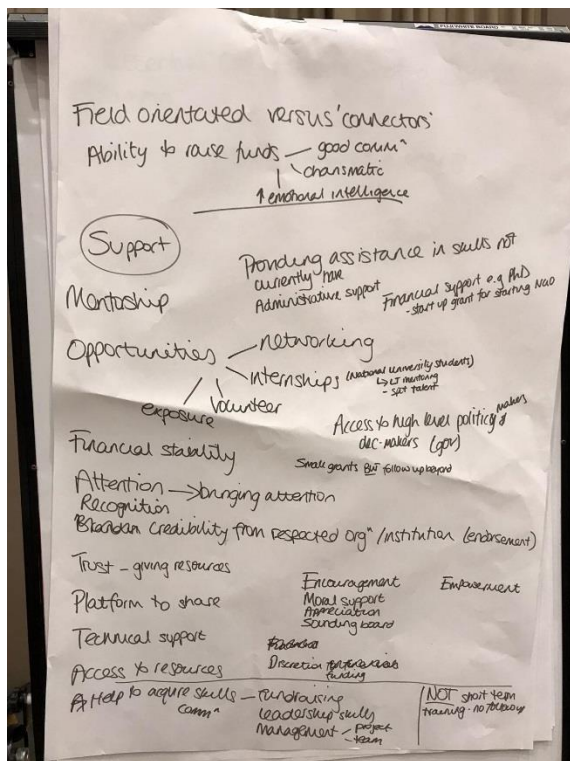 Field orientated versus 'connectors'
Ability to raise funds — good comm^n
charismatic
↑ emotional intelligence
Support
Providing assistance in skills not
currently have
Administrative support
Financial support e.g PhD
- start up grant for starting NGO
Mentoship
Opportunities — networking
internships (national university students)
↳ LT mentoring
- spot talent
Volunteer
exposure
Access to high level politics
makers
dec-makers (gov)
Financial stability
Small grants BUT follow up beyond
Attention → bringing attention
Recognition
Credibility from respected org^n / institution (endorsement)
Trust – giving resources
Platform to share
Technical support
Access to resources
Encouragement
Moral support
Appreciation
Sounding board
Empowerment
Discretion
funding
Help to acquire skills – fundraising
comm^n
leadership skills
management – project
- team
NOT short term
training - no follow up